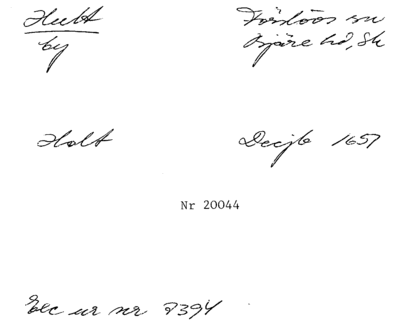 Hult Förslövs sn
by Bjäre hd, Sk
Holt Decjb 1657
Nr 20044
Exc ur nr 7394